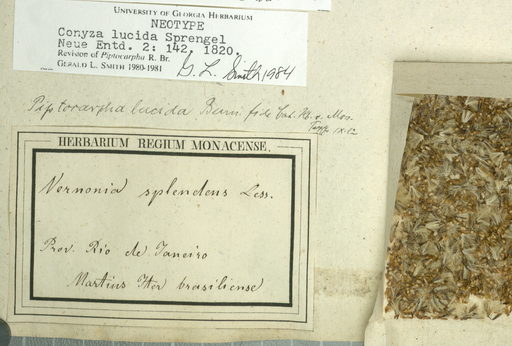 UNIVERSITY OF GEORGIA HERBARIUM
NEOTYPE
Conyza lucida Sprengel
Neue Entd. 2: 142. 1820.
Revision of Piptocarpha R. Br.
GERALD L. SMITH 1980-1981
G. L. Smith 1984
Piptocarpha lucida Benn fide Cat. Hb. v. Mon.
IX.82
HERBARIUM REGIUM MONACENSE.
Vernonia splendens Less.
Prov. Rio de Janeiro
Martius Iter brasiliense